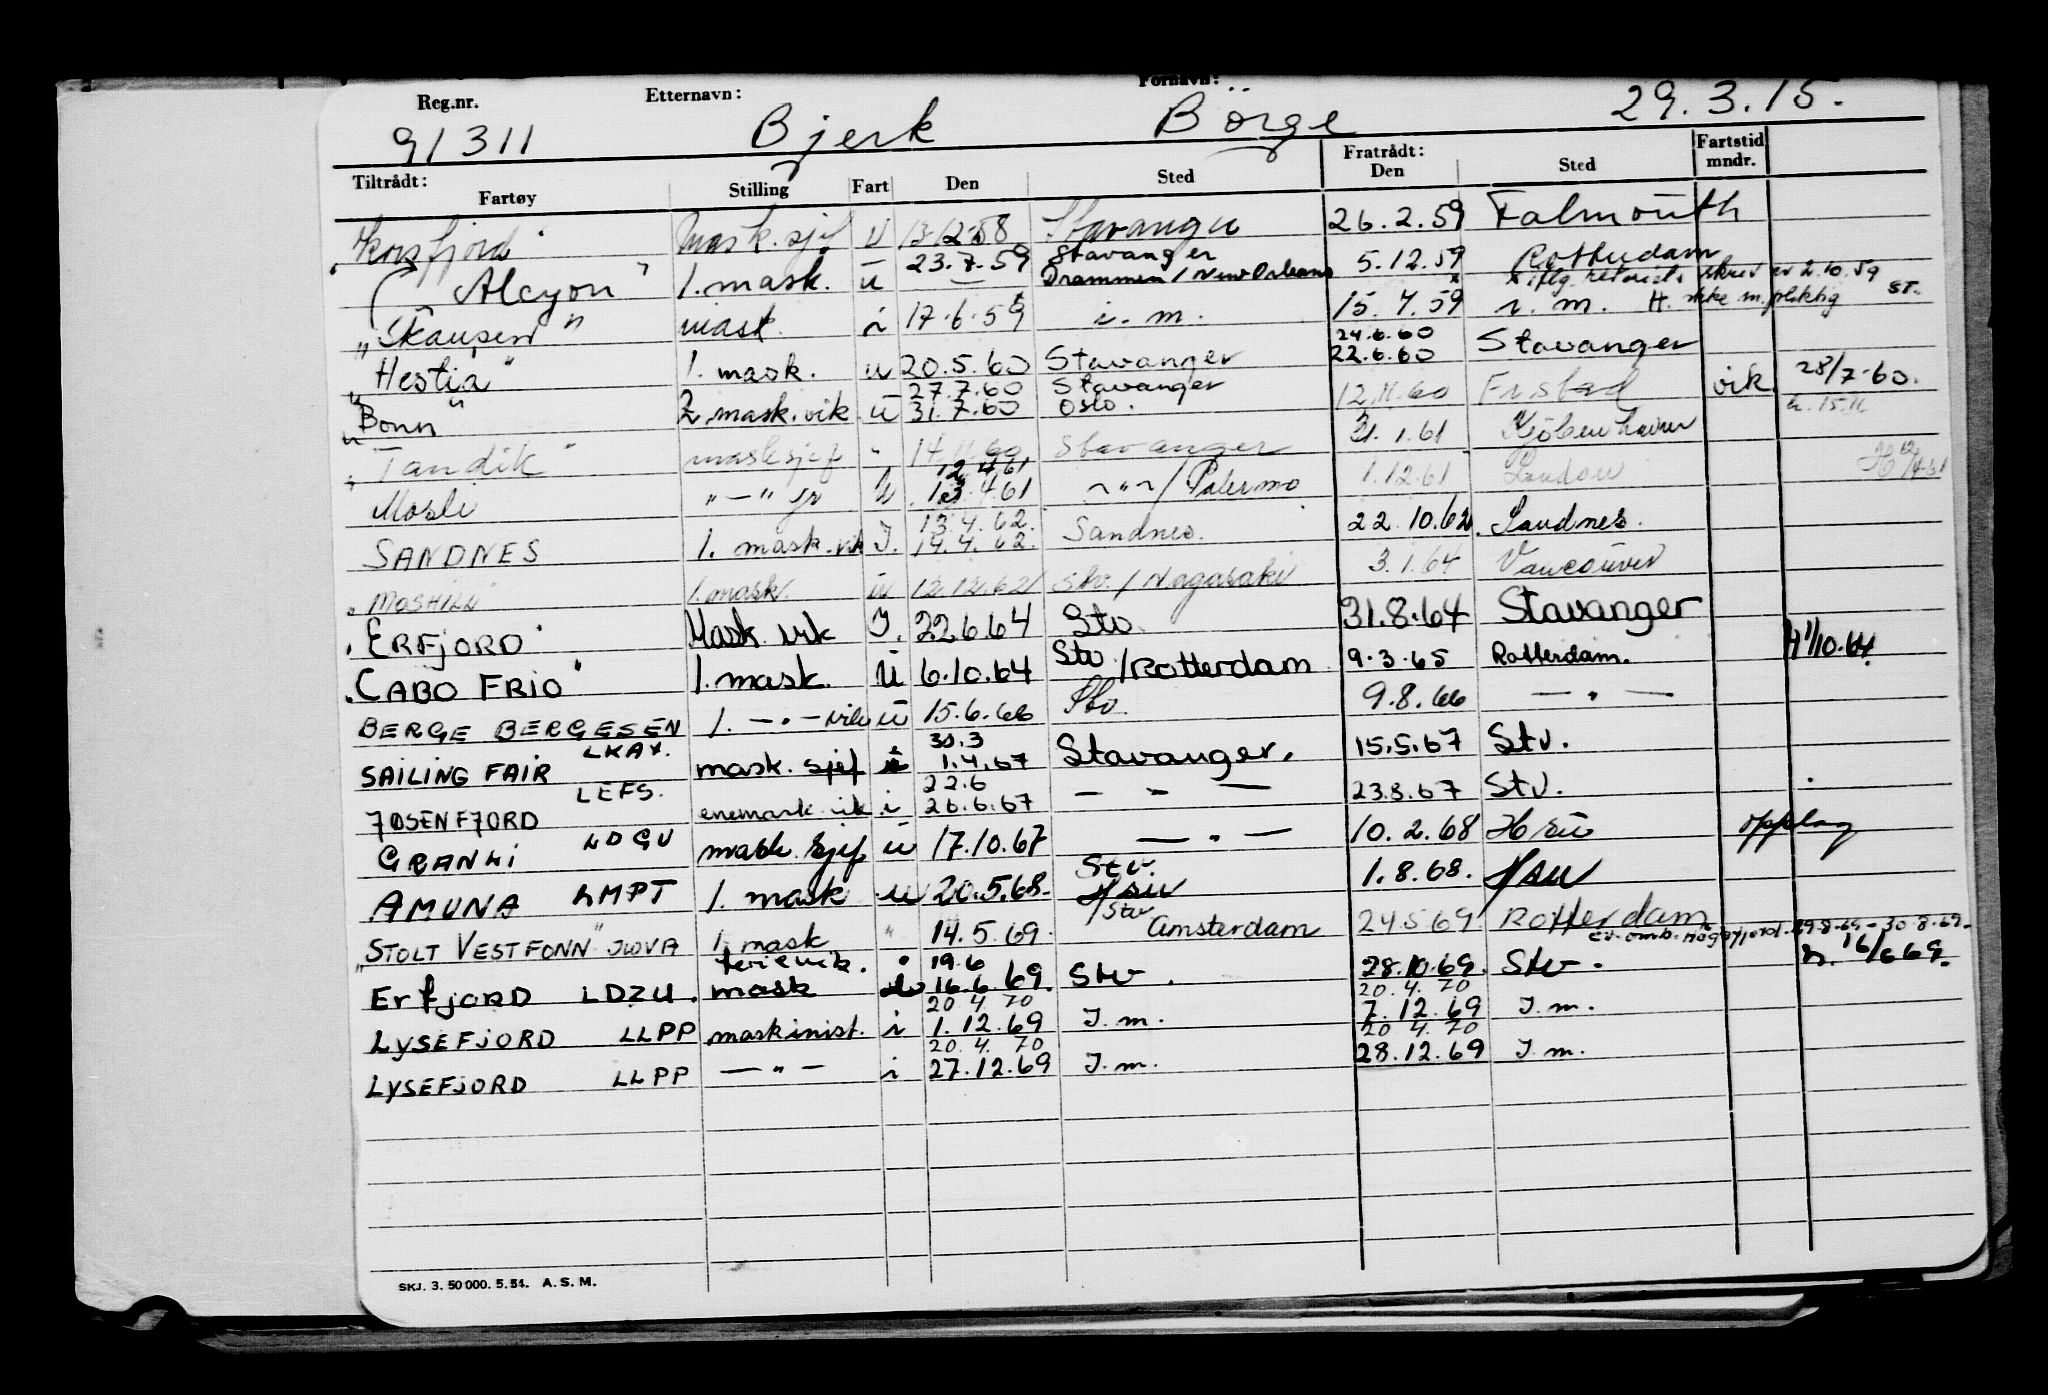 Reg.nr. Etternavn: Fornavn:
91311 Bjerk Börge 29.3.15.
Tiltrådt: Fratrådt: Fartstid
Fartøy Stilling Fart Den Sted Den Sted mndr.
"Korsfjord" Mask.sjef U 13.12.58 Stavanger 26.2.59 Falmouth
23.7.59 Stavanger
"Alcyon" 1. mask. u — Drammen/New Orleans 5.12.59 Rotterdam
2.10.59
"Skaupen" mask. i 17.6.59 i. m. 15.7.59 i. m. H. ikke m.pliktig ST.
24.6.60
"Hestia" 1. mask. u 20.5.60 Stavanger 22.6.60 Stavanger
27.7.60 Stavanger 28/7-60.
"Bonn" 2. mask. vik u 31.7.60 Oslo. 12.11.60 Fr.stad vik.
"Tandik" masksjef " 14.11.60 Stavanger 31.1.61 Köbenhavn
12.4.61
Mosli " — " u 13.4.61 ~"~/Palermo 1.12.61 London
13.4.62.
SANDNES 1. mask. vik I. 14.4.62. Sandnes. 22.10.62 Sandnes.
"MOSHILL" 1. mask. u 12.12.62 Stv. / Nagasaki 3.1.64 Vancouver
"ERFJORD" Mask vik I. 22.6.64 Stv 31.8.64 Stavanger
"CABO FRIO" 1. mask. U 6.10.64 Stv/Rotterdam 9.3.65 Rotterdam. H 1/10.64.
BERGE BERGESEN 1. — " — vik u 15.6.66 Stv. 9.8.66 — " —
30.3
SAILING FAIR LKAX. mask. sjef i 1.4.67 Stavanger. 15.5.67 Stv.
22.6
JØSENFJORD LEFS. enemask. vik i 26.6.67 — " — 23.8.67 Stv.
GRANLI LDGV mask. sjef u 17.10.67 — " — 10.2.68 Hsu opplag
Stv.
AMUNA LMPT 1. mask u 20.5.68. Hsu 1.8.68. Hsu
"STOLT VESTFONN" JWVA 1. mask " 14.5.69. Stv/Amsterdam 24.5.69. Rotterdam
29.8.69 - 30.8.69.
ferievik. 19.6
Erfjord LDZU. mask 16.6.69. Stv. 28.10.69. Stv. h. 16/6 69.
20 4 70 20.4.70
LYSEFJORD LLPP maskinist. i 1.12.69 I.m. 7.12.69 I.m.
20.4.70 20 4.70
LYSEFJORD LLPP — " — i 27.12.69 I.m. 28.12.69 I.m.
SKJ. 3. 50 000. 5. 54. A. S. M.